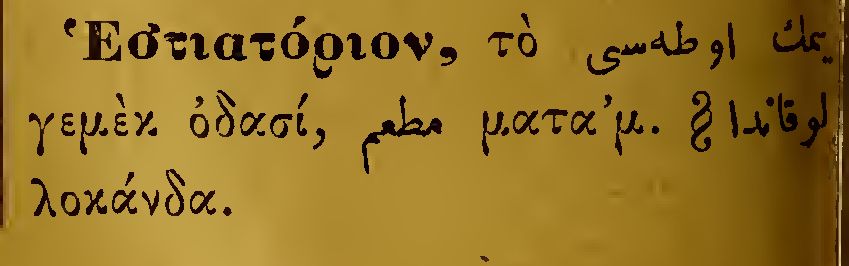 Ἑστιατόριον, τὸ يمك اوطه‌سی
γεμὲκ ὀδασί, مطعم ματα’μ. § لوقاندا
λοκάνδα.